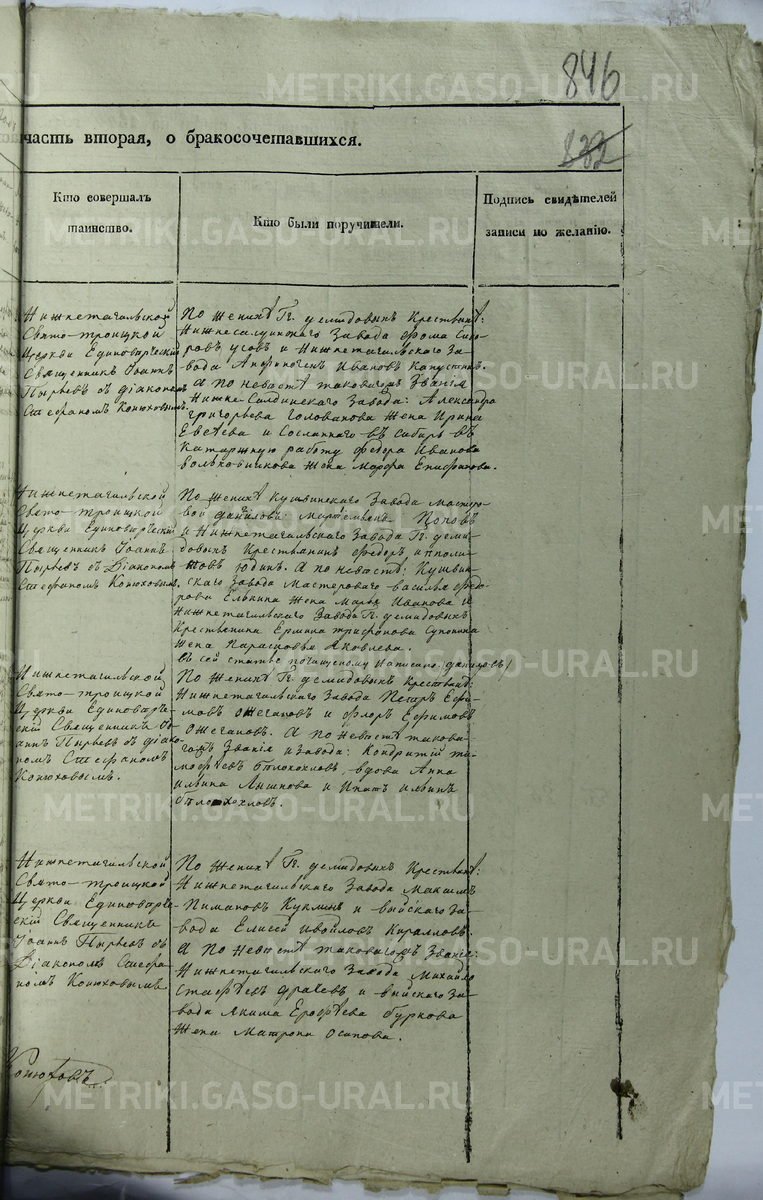 846
832
часть вторая, о бракосочетавшихся.
Кто совершалъ
таинство.
Кто были поручители.
Подпись свидѣтелей
записи по желанію.
Нижнетагильской
Свято-троицкой
Церкви Единовѣрческій
Священникъ Іоаннъ
Пырьевъ съ діакономъ
Стефаномъ Конюховымъ.
По женихѣ Гг. демидовыхъ Крестьяне:
Нижнесалдинскаго Завода Фома
Усовъ и Нижнетагильскаго За-
вода Иванов Капустинъ.
А по невѣстѣ таковагожъ Званія
Нижне-Салдинскаго Завода: Александра
григорьева Голованова жена Ирина
Евсѣева и Сосланнаго въ Сибирь въ
каторжную работу федора Иванова
жена Марфа Епифанова.
Нижнетагильской
Свято-троицкой
Церкви Единовѣрческій
Священникъ Іоаннъ
Пырьевъ съ Діакономъ
Стефаномъ Конюховымъ.
По женихѣ Кушвинскаго Завода мастеро-
вой Поповъ
и Нижнетагильскаго Завода Гг. деми-
довыхъ Крестьянинъ Федоръ иполи-
товъ юдинъ. А по невѣстѣ: Кушвин-
скаго Завода Мастероваго василья Федо-
рова Елькина жена Марья Иванова и
Нижнетагильскаго Завода Гг. демидовыхъ
Ермила трифонова
жена Парасковья Яковлева.
Въ сей статьѣ почищеному написано:
Нижнетагильской
Свято-троицкой
Церкви Единовѣрче-
скій Священникъ Іо-
аннъ Пырьевъ съ діако-
номъ Стефаномъ
Конюховымъ.
По женихѣ Гг. демидовыхъ Крестьяне:
Нижнетагильскаго Завода Петръ Ефи-
мовъ Ожегановъ и флоръ Ефимовъ
Ожегановъ. А по невѣстѣ такова-
гожъ Званія и завода: Кондратій ти-
мофѣевъ Бѣлохохловъ, вдова Анна
ильина и Ипатъ ильинъ
Бѣлохохловъ.
Нижнетагильской
Свято-троицкой
Церкви Единовѣрче-
скій Священникъ
Іоаннъ Пырьевъ съ
Діакономъ Стефа-
номъ Конюховымъ
По женихѣ Гг. демидовыхъ Крестьяне:
Нижнетагильскаго Завода Максимъ
Пимановъ Куклинъ и выйскаго за-
вода Елисей
А по невѣстѣ таковагожъ Званія:
Нижнетагильскаго Завода Михайло
и выйскаго За-
вода Якима Ерофѣева буркова
жена Матрона Осипова.
Конюховъ
METRIKI.GASO-URAL.RU